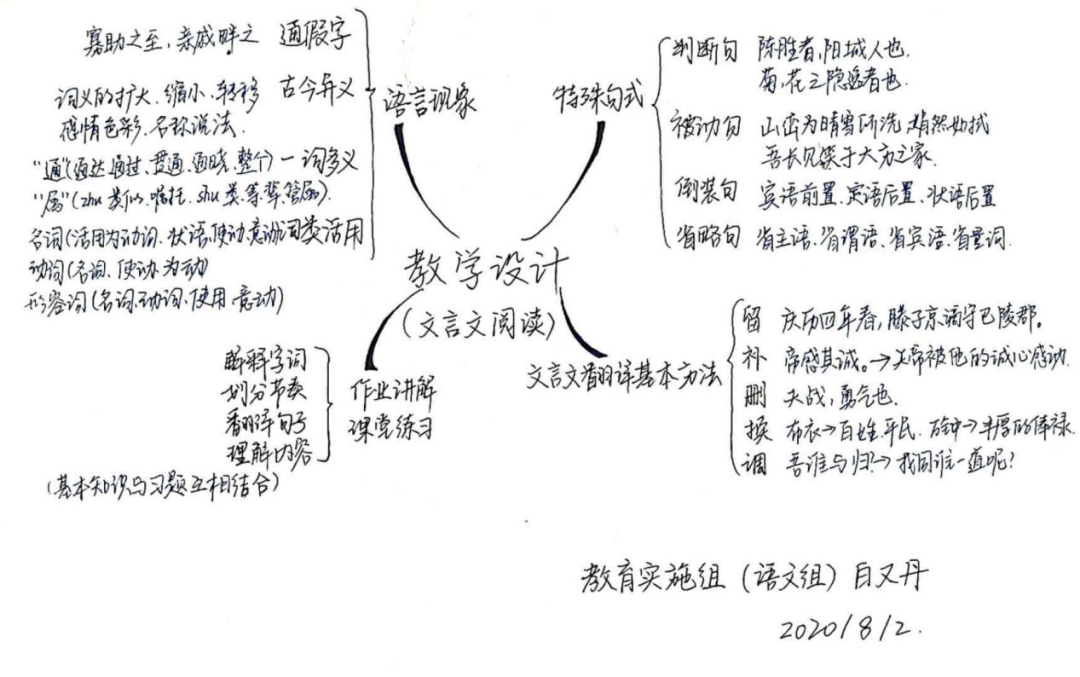 教学设计
（文言文阅读）
语言现象
寡助之至，亲戚畔之 通假字
词义的扩大、缩小、转移 古今异义
感情色彩、名称说法
"通"（通达、通过、贯通、通晓、整个）一词多义
"属"（zhu 类似、嘱托、shu 类、等辈、管属）
名词（活用为动词、状语、使动、意动）词类活用
动词（名词、使动、为动）
形容词（名词、动词、使用、意动）
特殊句式
判断句 陈胜者，阳城人也.
菊，花之隐逸者也.
被动句 山峦为晴雪所洗，娟然如拭
吾长见笑于大方之家.
倒装句 宾语前置、定语后置、状语后置
省略句 省主语、省谓语、省宾语、省量词.
作业讲解
课堂练习
解释字词
划分节奏
翻译句子
理解内容
（基本知识与习题互相结合）
文言文翻译基本方法
留 庆历四年春，滕子京谪守巴陵郡。
补 帝感其诚。→天帝被他的诚心感动.
删 夫战，勇气也.
换 布衣→百姓、平民.
调 吾谁与归？→我同谁一道呢？
教育实施组（语文组）白又丹
2020/8/2.